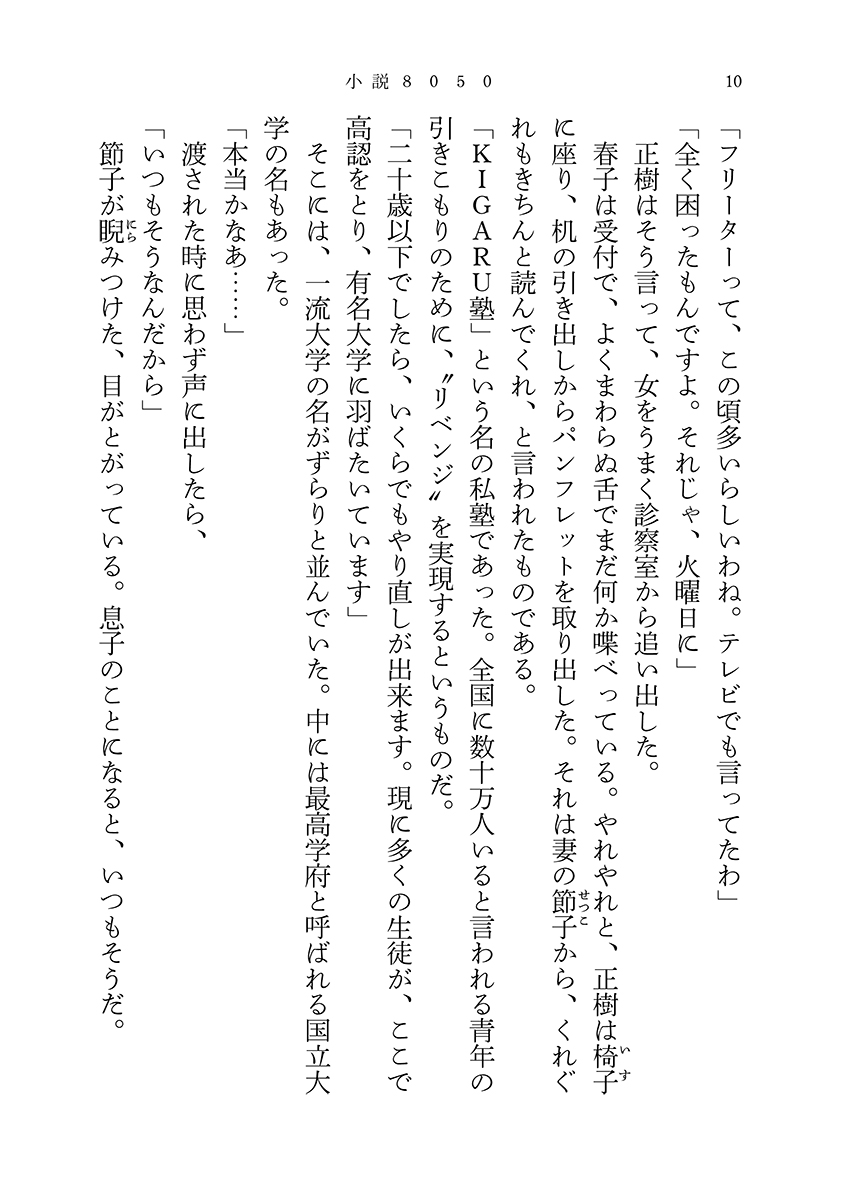 小説８０５０
10
「フリーターって、この頃多いらしいわね。テレビでも言ってたわ」
「全く困ったもんですよ。それじゃ、火曜日に」
正樹はそう言って、女をうまく診察室から追い出した。
春子は受付で、よくまわらぬ舌でまだ何か喋べっている。やれやれと、正樹は椅子
いす
に座り、机の引き出しからパンフレットを取り出した。それは妻の節子から、くれぐ
せつこ
れもきちんと読んでくれ、と言われたものである。
「ＫＩＧＡＲＵ塾」という名の私塾であった。全国に数十万人いると言われる青年の
引きこもりのために、〝リベンジ〟を実現するというものだ。
「二十歳以下でしたら、いくらでもやり直しが出来ます。現に多くの生徒が、ここで
高認をとり、有名大学に羽ばたいています」
そこには、一流大学の名がずらりと並んでいた。中には最高学府と呼ばれる国立大
学の名もあった。
「本当かなあ……」
渡された時に思わず声に出したら、
「いつもそうなんだから」
節子が睨みつけた、目がとがっている。息子のことになると、いつもそうだ。
にら